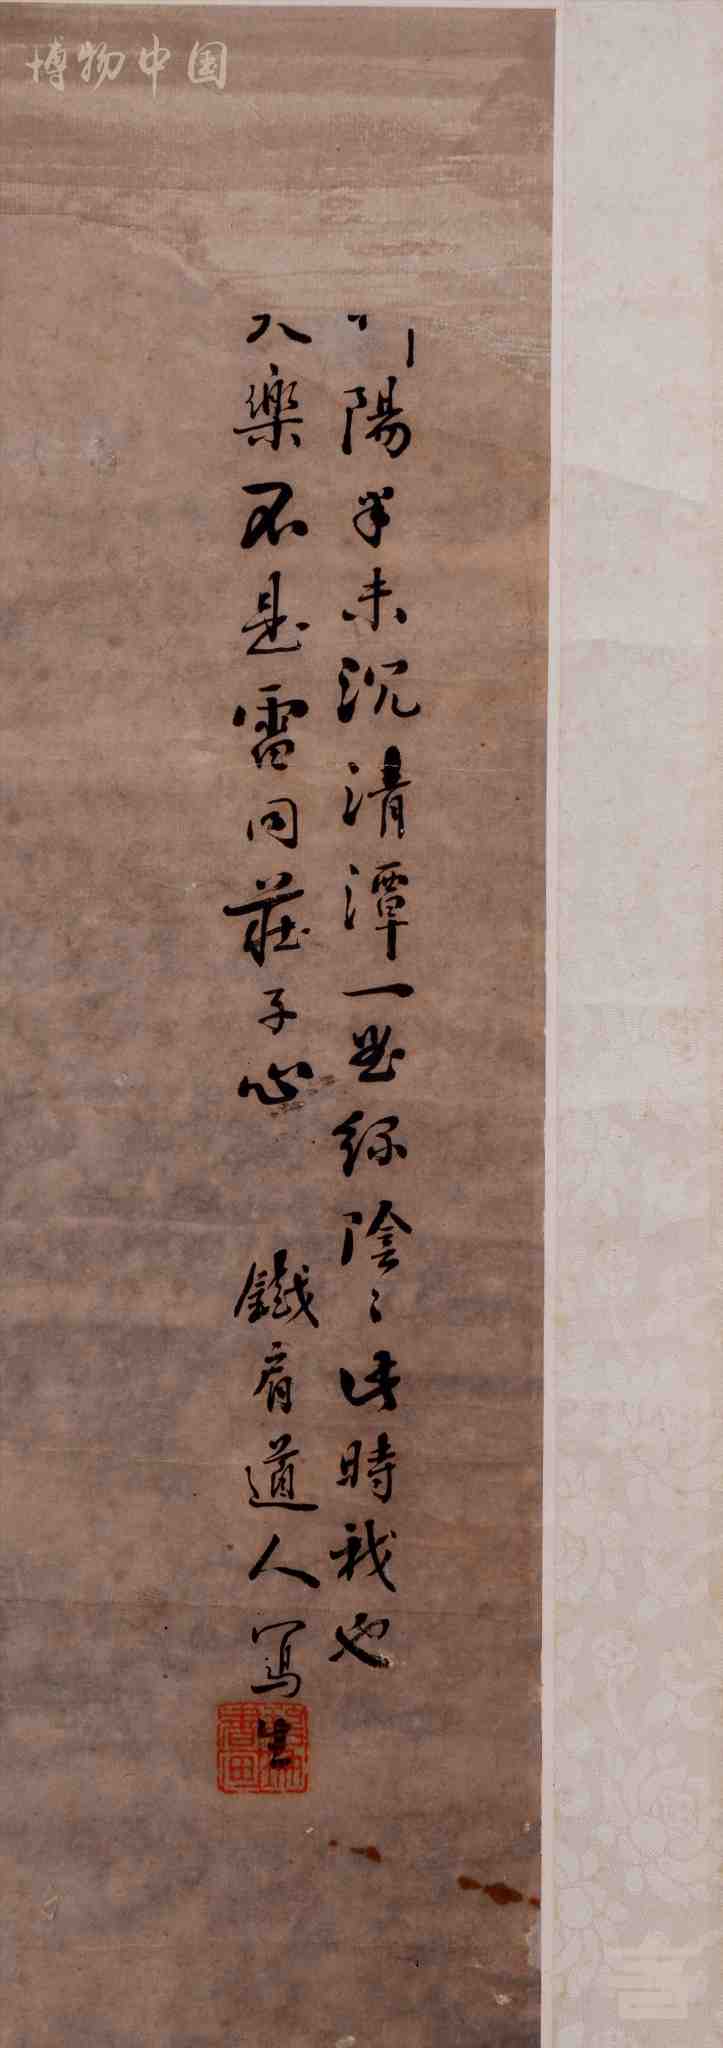 博物中国
陽半未沉清潭一綠陰〻此時我也
樂不是雷同莊子心 鐵肩道人寫生